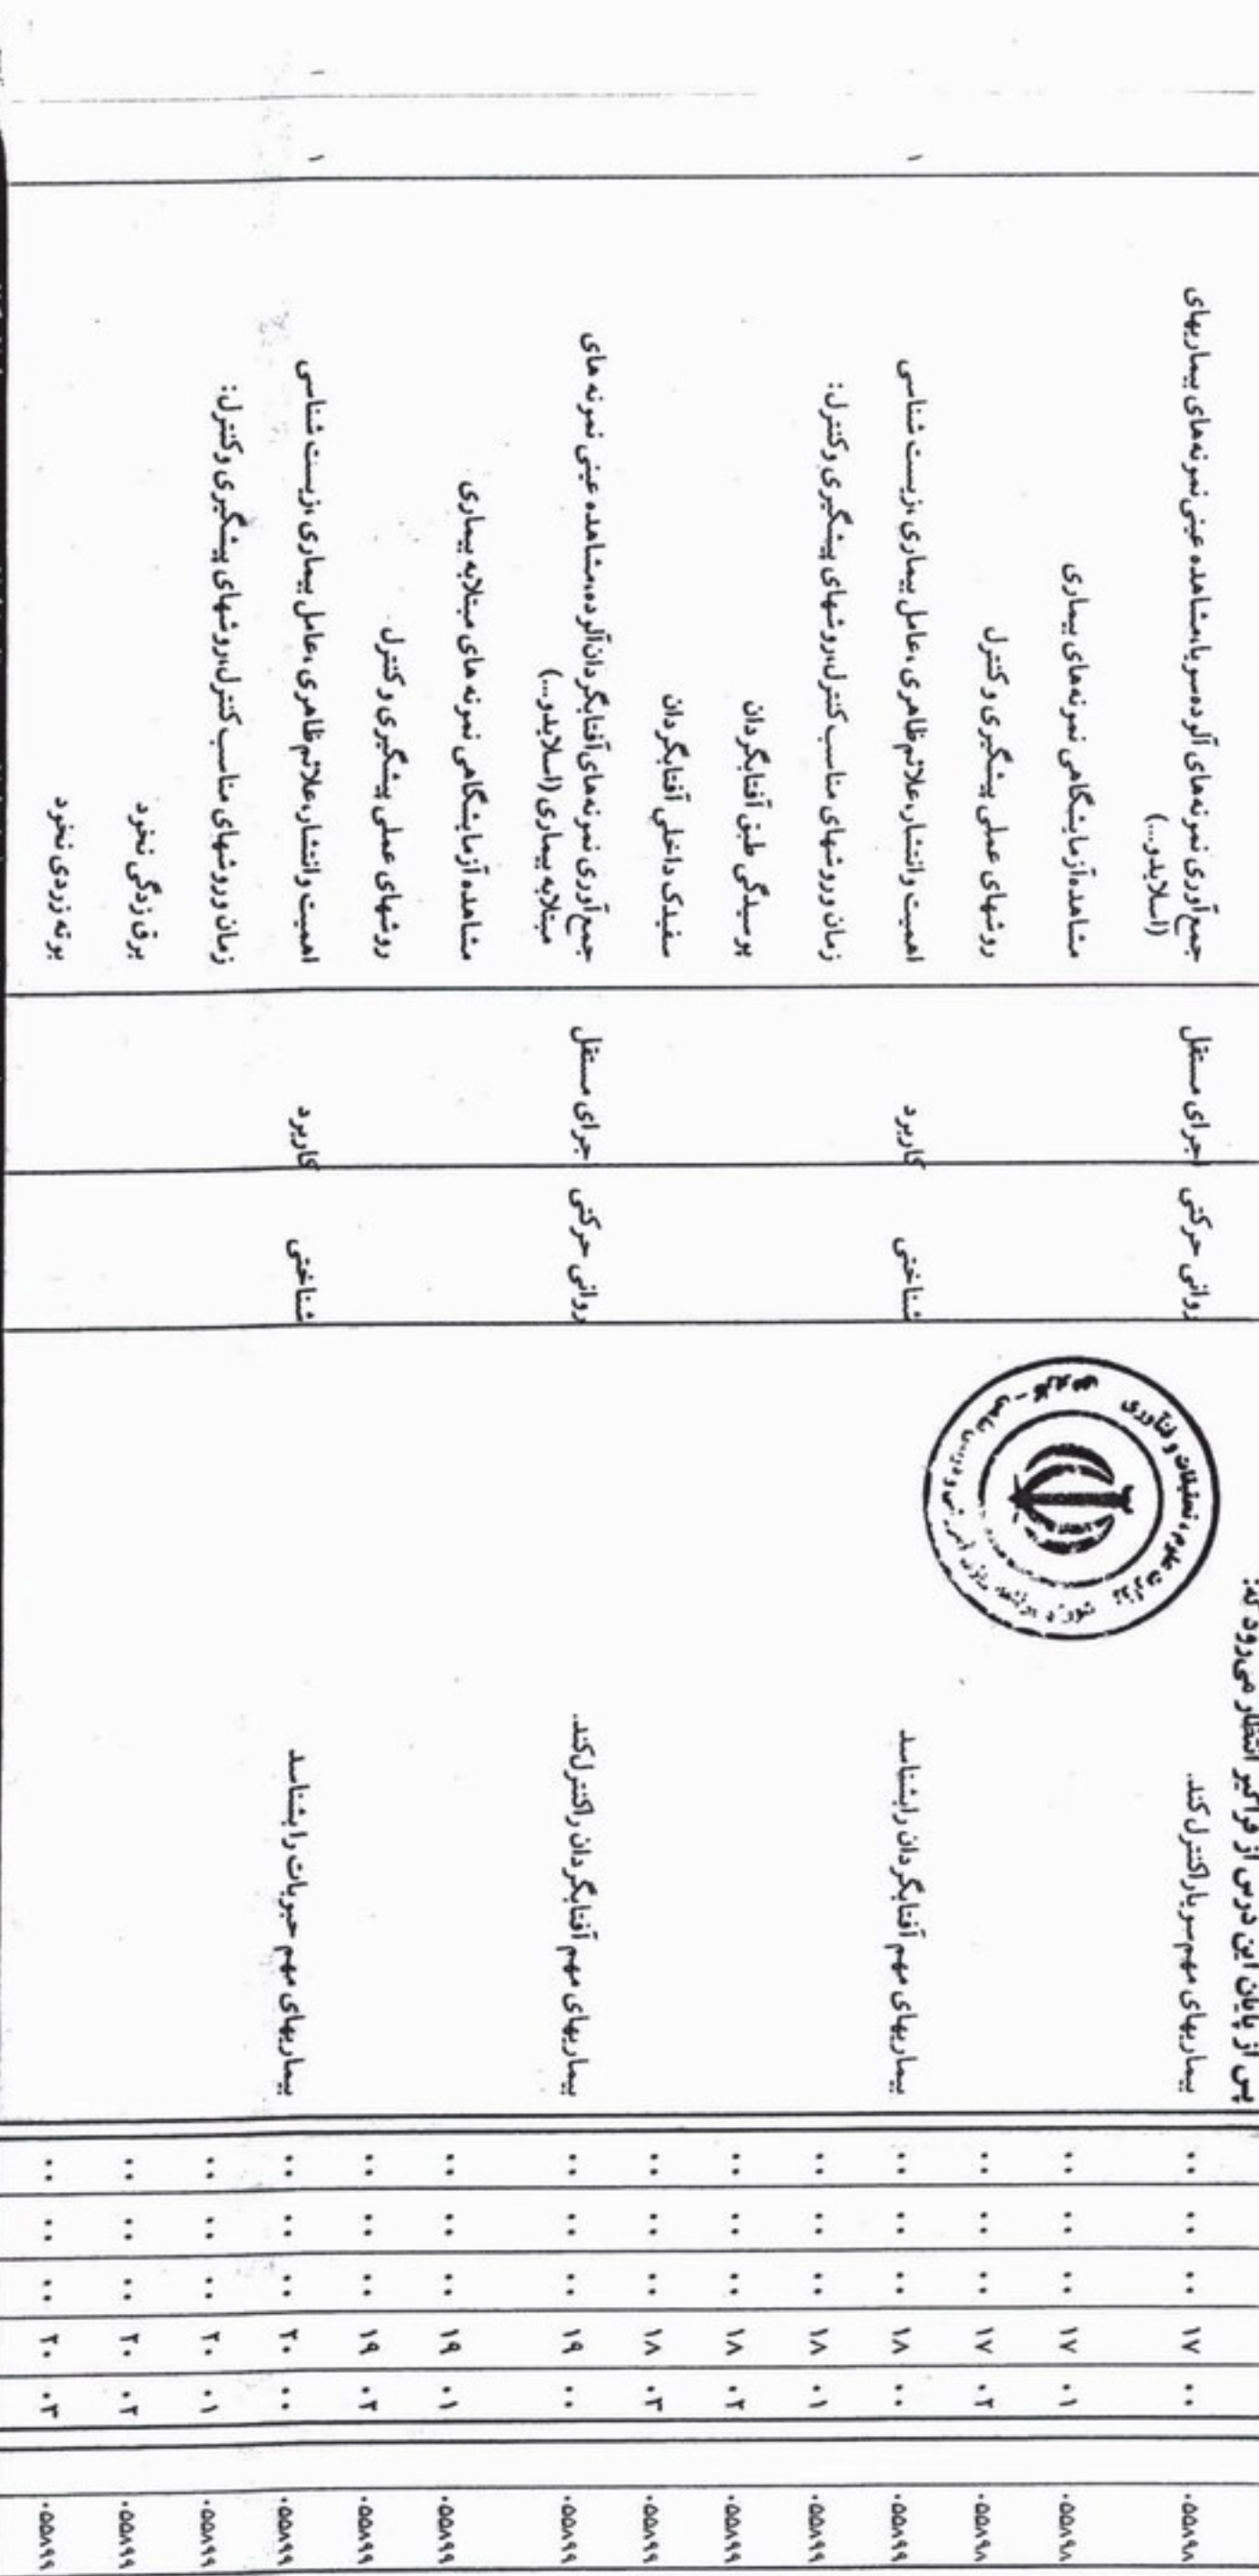 پس از پایان این درس از فراگیر انتظار می‌رود که:
۰۵۵۸۹۸ ۰۰ ۱۷ ۰۰ ۰۰ ۰۰ بیماریهای مهم سویا راکنترل کند. روانی حرکتی اجرای مستقل جمع آوری نمونه‌های آلوده سویا،مشاهده عینی نمونه‌های بیماریهای
(اسلایدو...)
۰۵۵۸۹۸ ۰۱ ۱۷ ۰۰ ۰۰ ۰۰ مشاهده آزمایشگاهی نمونه‌های بیماری
۰۵۵۸۹۸ ۰۲ ۱۷ ۰۰ ۰۰ ۰۰ روشهای عملی پیشگیری و کنترل
۰۵۵۸۹۹ ۰۰ ۱۸ ۰۰ ۰۰ ۰۰ بیماریهای مهم آفتابگردان رابشناسد شناختی کاربرد اهمیت وانتشار،علائم ظاهری ،عامل بیماری ،زیست شناسی ۱
۰۵۵۸۹۹ ۰۱ ۱۸ ۰۰ ۰۰ ۰۰ زمان وروشهای مناسب کنترل،روشهای پیشگیری وکنترل:
۰۵۵۸۹۹ ۰۲ ۱۸ ۰۰ ۰۰ ۰۰ پوسیدگی طبق آفتابگردان
۰۵۵۸۹۹ ۰۳ ۱۸ ۰۰ ۰۰ ۰۰ سفیدک داخلی آفتابگردان
۰۵۵۸۹۹ ۰۰ ۱۹ ۰۰ ۰۰ ۰۰ بیماریهای مهم آفتابگردان راکنترل کند. روانی حرکتی اجرای مستقل جمع آوری نمونه‌های آفتابگردان آلوده،مشاهده عینی نمونه های
مبتلابه بیماری (اسلایدو...)
۰۵۵۸۹۹ ۰۱ ۱۹ ۰۰ ۰۰ ۰۰ مشاهده آزمایشگاهی نمونه های مبتلابه بیماری
۰۵۵۸۹۹ ۰۲ ۱۹ ۰۰ ۰۰ ۰۰ روشهای عملی پیشگیری و کنترل
۰۵۵۸۹۹ ۰۰ ۲۰ ۰۰ ۰۰ ۰۰ بیماریهای مهم حبوبات را بشناسد شناختی کاربرد اهمیت وانتشار،علائم ظاهری ،عامل بیماری ،زیست شناسی ۱
۰۵۵۸۹۹ ۰۱ ۲۰ ۰۰ ۰۰ ۰۰ زمان وروشهای مناسب کنترل،روشهای پیشگیری وکنترل:
۰۵۵۸۹۹ ۰۲ ۲۰ ۰۰ ۰۰ ۰۰ برق زدگی نخود
۰۵۵۸۹۹ ۰۳ ۲۰ ۰۰ ۰۰ ۰۰ بوته زردی نخود